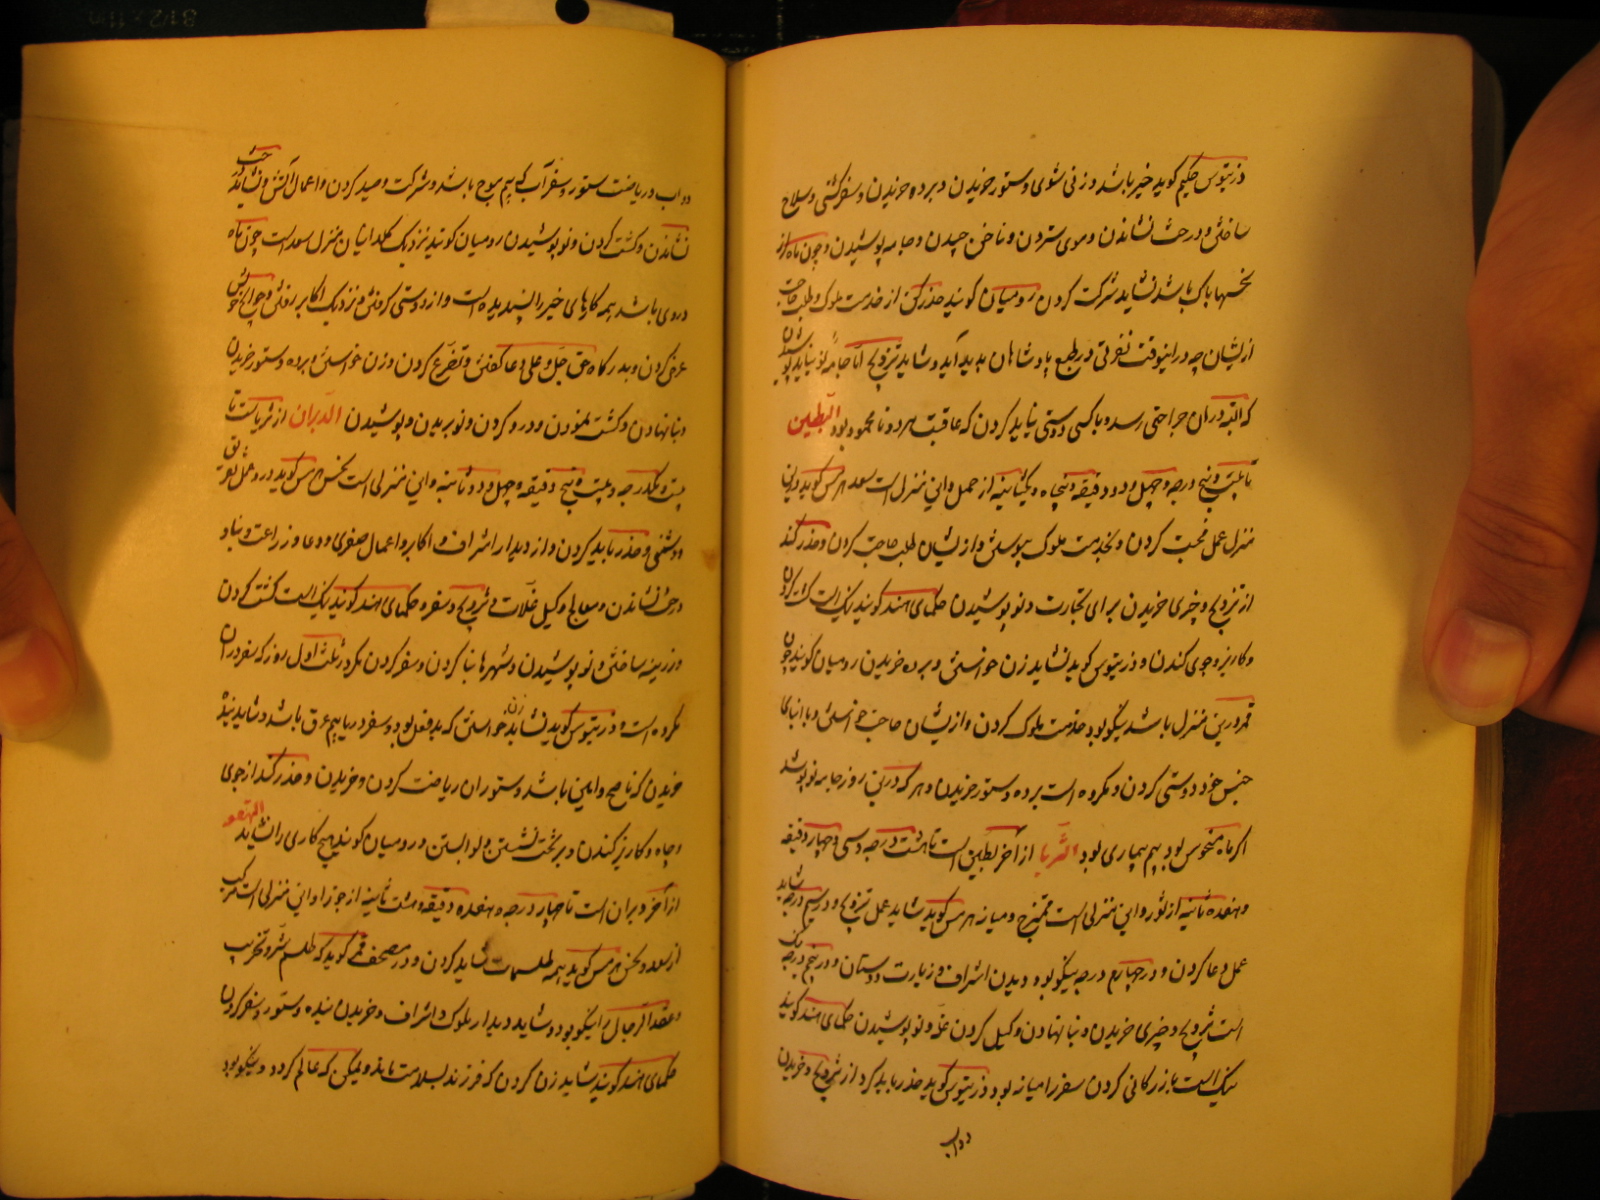 ذرنیوس حکیم گوید خیر باشد در زنی شوی و ستور خریدن و برده خریدن و سفر کشتی و سلاح
ساختن و درخت نشاندن و موی ستردن و ناخن چیدن و جامه پوشیدن و چون ماه از
نحسها پاک باشد نشاید شرکت کردن رومیان گویند حذر کن از خدمت ملوک و طلب حاجت
ازیشان چه در اینوقت نفرتی در طبع پادشاهان پدید آید و شاید تزویج اما جامه نو نباید پوشیدن
که البته در آن جراحتی رسد و با کسی دوستی نباید کردن که عاقبت هر دو نامحمود بود البطین
تا بیست و پنج درجه و چهل و دو دقیقه و پنجاه و یکثانیه از حمل و این منزل است سعد هرمس گوید درین
منزل عمل محبت کردن و بخدمت ملوک پیوستن و ازیشان طلب حاجت کردن و حذر کند
از تزویج و چیزی خریدن برای تجارت و نو پوشیدن حکمای هند گویند نیک است کشت کردن
و کاریز و جوی کندن و ذرنیوس گوید نشاید زن خواستن و برده خریدن رومیان گویند چون
قمر درین منزل باشد نیکو بود خدمت ملوک کردن و ازیشان حاجت خواستن و با ابنای
جنس خود دوستی کردن و مکروه است برده و ستور خریدن و هر که درین روز جامه نو پوشد
اگر ماه منحوس بود بیم بیماری بود الثریا از آخر بطین است تا هشت درجه و سی و چهار دقیقه
و هفده ثانیه از ثور و این منزلی است ممتزج و میانه هرمس گوید شاید عمل تزویج و در سیم درجه شاید
عمل دعا کردن و در چهارم درجه نیکو بود دیدن اشراف و زیارت دوستان و در پنجم درجه نیک
است تزویج و چیزی خریدن و بنا نهادن و کیل کردن غله و نو پوشیدن حکمای هند گویند
نیک است بازرگانی کردن سفر را میانه بود ذرنیوس گوید حذر باید کرد از تزویج و خریدن
دواب
دواب و ریاضت ستور و سفر آب که بیم موج باشد و شرکت و صید کردن و اعمال آتش و نشاید درخت
نشاندن و کشت کردن و نو پوشیدن رومیان گویند نزدیک کلدانیان منزل سعد است چون ماه
در وی باشد همه کارهای خیر را پسندیده است و از دوستی کردن و نزدیک اکابر رفتن و حوایج خویش
عرض کردن و بدرگاه حق جل و علی دعا گفتن و تضرع کردن و زن خواستن و برده و ستور خریدن
و بنا نهادن و کشت نمودن و درو کردن و نو بریدن و پوشیدن الدبران از ثریاست تا
بیست و یکدرجه و بیست و پنج دقیقه و چهل و دو ثانیه و این منزلی است نحس هرمس گوید در وی عمل تفریق
و دشمنی و حذر باید کردن و از دیدار اشراف و اکابر و اعمال صغری و دعا و زراعت و بناو
درخت نشاندن و معالجه و کیل غلات و تزویج و سفر و حکمای هند گویند نیک است کشت کردن
و زرینه ساختن و نو پوشیدن و شهرها بنا کردن و سفر کردن مگر در ثلث اول روز که سفر در آن
مکروه است و ذرنیوس گوید نشاید زن خواستن که بدفعل بود و سفر دریا بیم غرق باشد و شاید بنده
خریدن که ناصح و امین باشد و ستوران ریاضت کردن و خریدن و حذر کند از جوی
و چاه و کاریز کندن و بر تخت نشستن و لوا بستن و رومیان گویند هیچ کاری را نشاید الهقعه
از آخر دبران است تا چهار درجه و هفده دقیقه و هشت ثانیه از جوزا و این منزلی است مرکب
از سعد و نحس هرمس گوید همه طلسمات شاید کردن و در مصحف قمر گوید که طلسم شر و تخریب
و عقد الرجال را نیکو بود و شاید دیدار ملوک و اشراف و خریدن بنده و ستور و سفر کردن
حکمای هند گویند شاید زن کردن که فرزند بسلامت ماند و لیکن که عالم گردد و نیکو بود